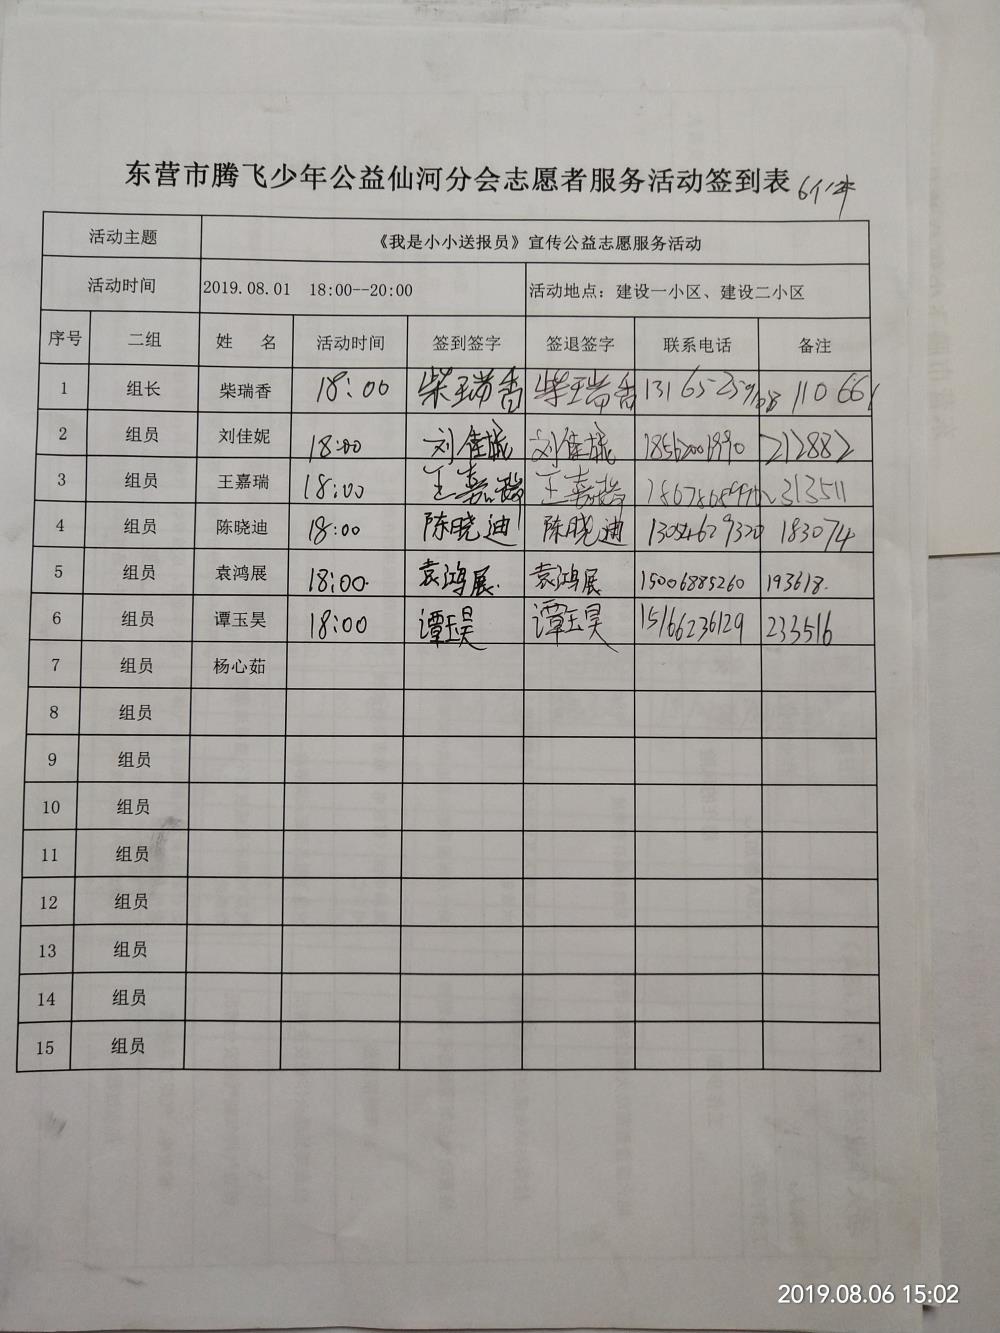 东营市腾飞少年公益仙河分会志愿者服务活动签到表
活动主题 《我是小小送报员》宣传公益志愿服务活动
活动时间 2019.08.01 18:00--20:00 活动地点：建设一小区、建设二小区
序号 二组 姓 名 活动时间 签到签字 签退签字 联系电话 备注
1 组长 柴瑞香 18:00 柴瑞香 柴瑞香 110661
2 组员 刘佳妮 18:00 刘佳妮 刘佳妮 18562001990 212882
3 组员 王嘉瑞 18:00 王嘉瑞 王嘉瑞 313511
4 组员 陈晓迪 18:00 陈晓迪 陈晓迪 13054629320 183074
5 组员 袁鸿展 18:00. 袁鸿展. 袁鸿展 15006885260 193618.
6 组员 谭玉昊 18:00 谭玉昊 谭玉昊 15166236129 233516
7 组员 杨心茹
8 组员
9 组员
10 组员
11 组员
12 组员
13 组员
14 组员
15 组员
2019.08.06 15:02